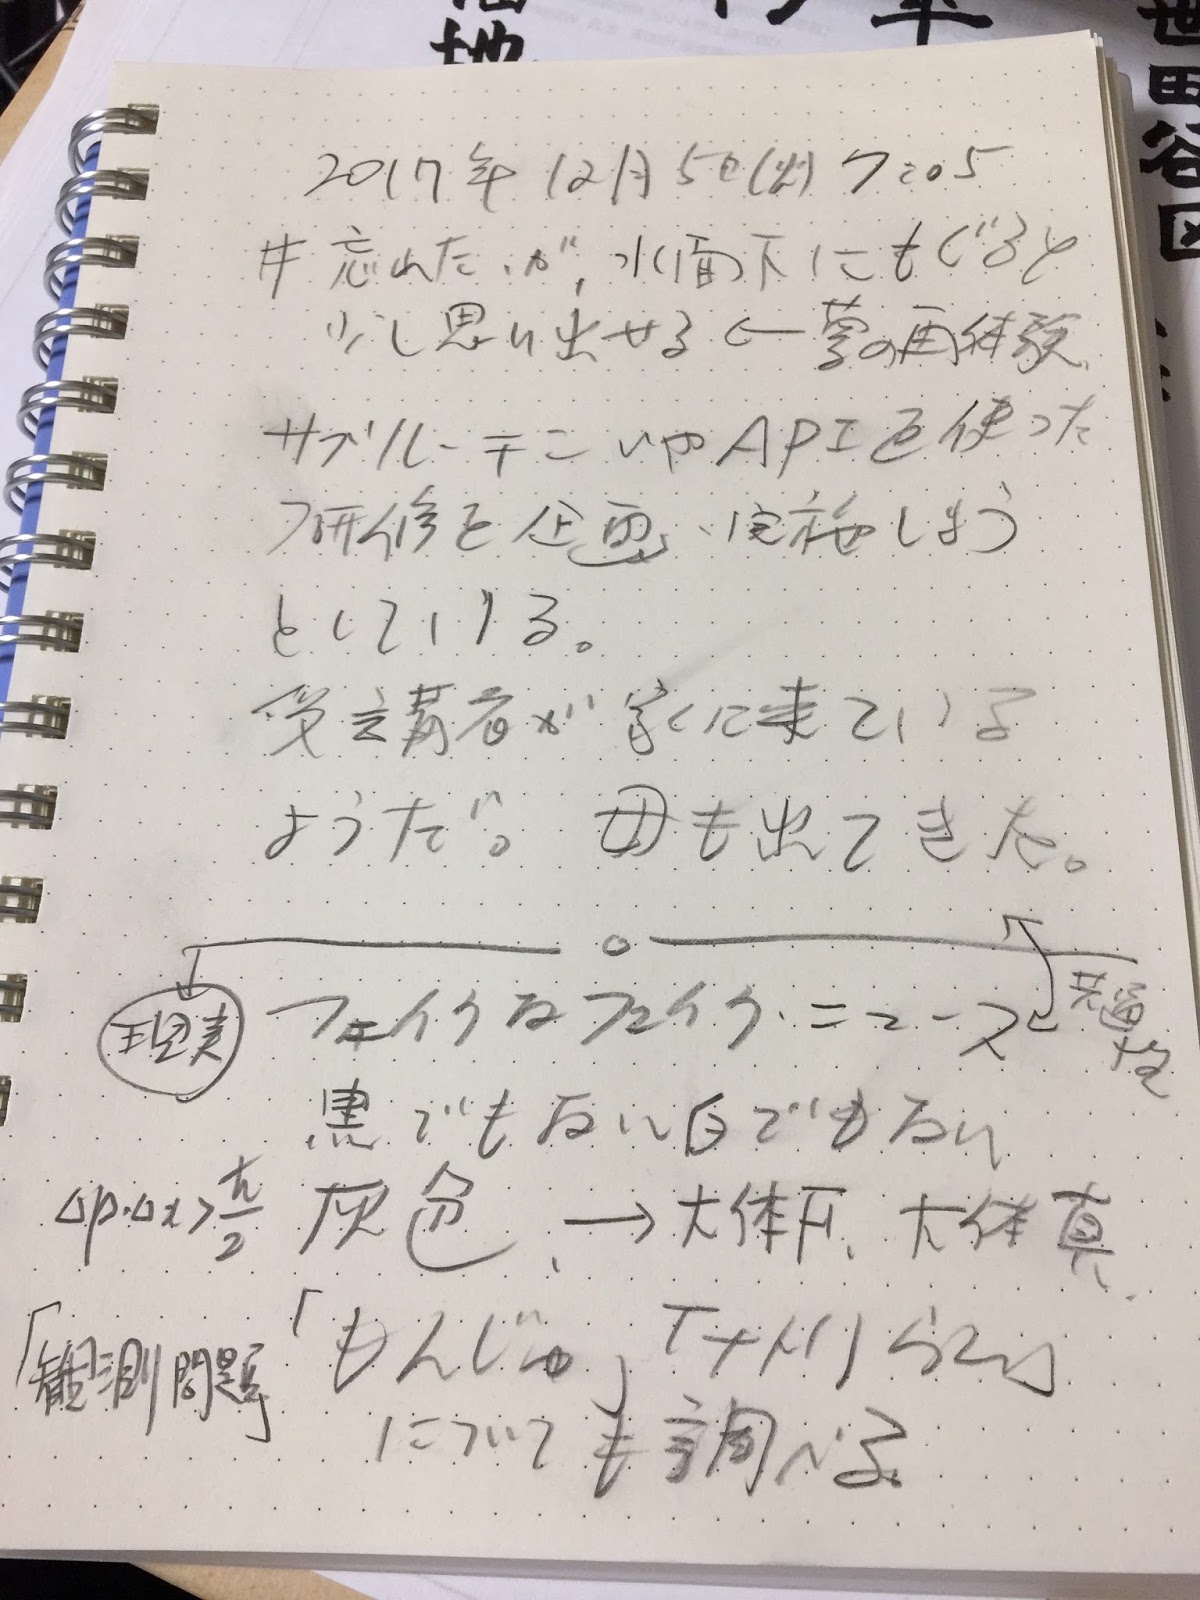 世田谷区
2017年12月5日(火) 7:05
# 忘れたが、水面下にもぐると
少し思い出せる ← 夢の再体験
サブルーチンやAPIを使った
研修を企画・実施しよう
としている。
受講者が家に来ている
ようだ。母も出てきた。
現実
フェイクなフェイク・ニュース
共通性
黒でもない白でもない
Δp・Δx>ℏ/2
灰色、→大体下、大体真、
「観測問題」
「もんじゅ」
についても調べる。